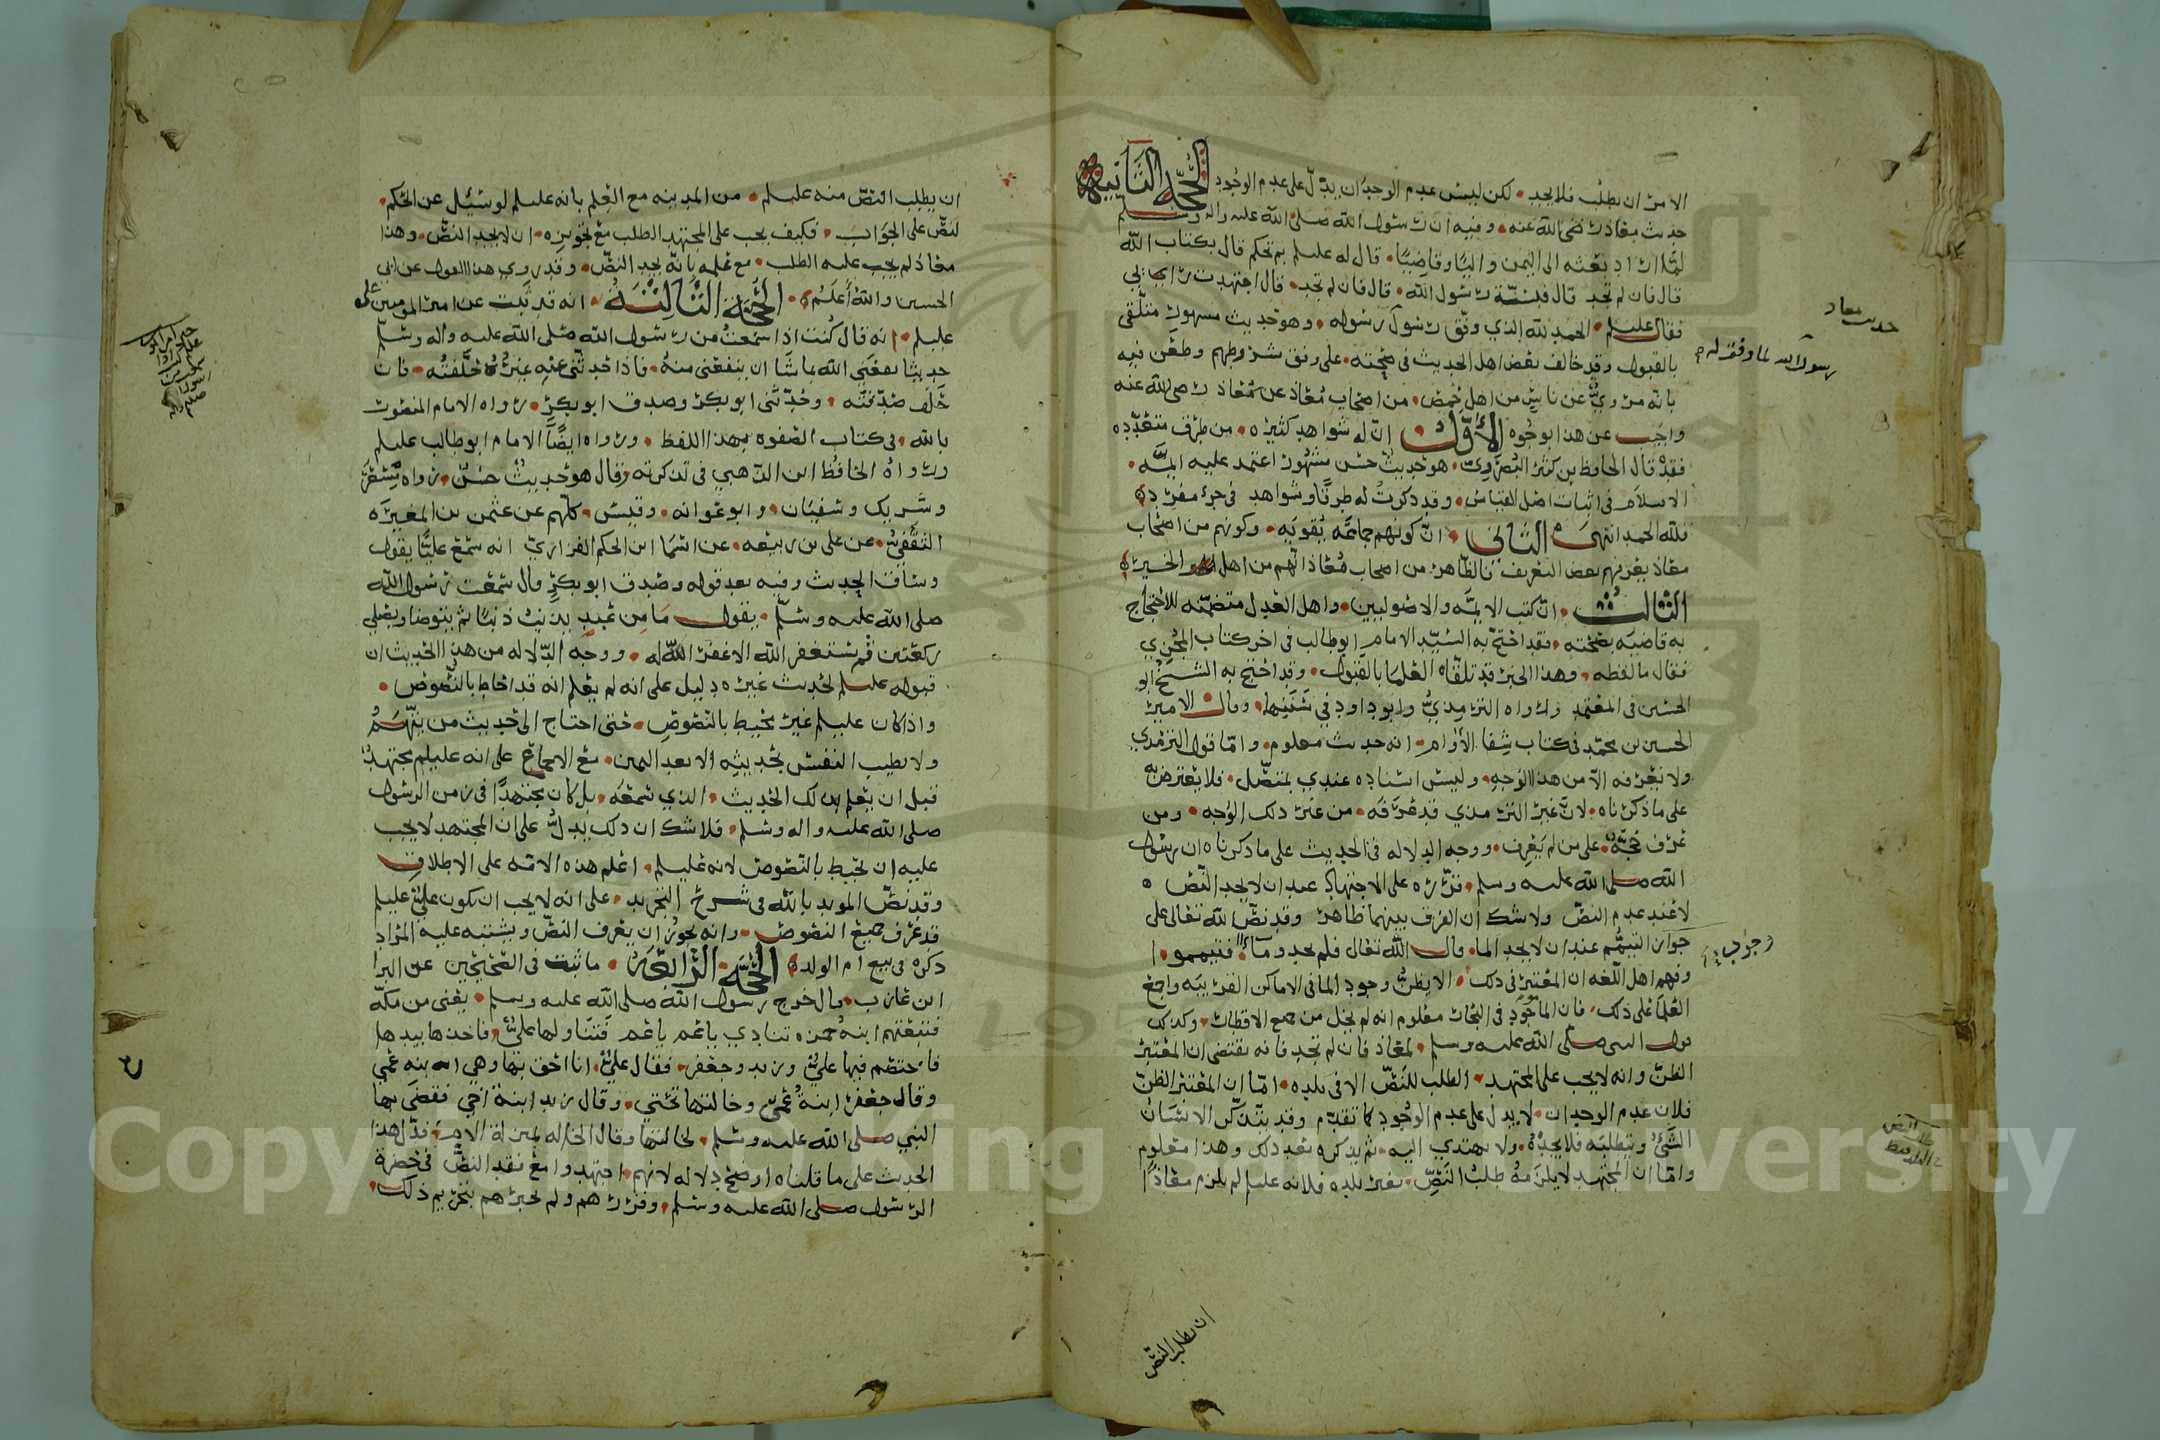 الامر ان يطلب فلا يجد لكن ليس عدم الوجدان يدل على عدم الوجود الحجة الثانية
حديث معاذ رضي الله عنه وفيه ان رسول الله صلى الله عليه واله وسلم
قال له اذ بعثه الى اليمن واليا وقاضيا قال له عليلم بم تحكم قال بكتاب الله
قال فان لم تجد قال فبسنة رسول الله قال فان لم تجد قال اجتهدت رايي
فقال عليلم الحمد لله الذي وفق رسول رسوله وهو حديث مشهور متلقى
بالقبول وقد خالف بعض اهل الحديث في صحته على وفق شروطهم وطعن فيه
بانه مروي عن ناس من اهل حمص من اصحاب معاذ عن معاذ رضي الله عنه
واجيب عن هذا بوجوه الاول ان له شواهد كثيره من طرق متعدده
فقد قال الحافظ بن كثير البصروي هو حديث حسن مشهور اعتمد عليه ايمة
الاسلام في اثبات اصل القياس وقد ذكرت له طرقا وشواهد في جزء مفرد
فلله الحمد انتهى الثاني ان كونهم جماعة يقويه وكونهم من اصحاب
معاذ يعرفهم بعض التعريف فالظاهر من اصحاب معاذ انهم من اهل الخير
الثالث ان كتب الايمة والاصوليين واهل العدل متضمنه للاحتجاج
به قاضيه بصحته فقد احتج به السيد الامام ابو طالب في اخر كتاب المجزي
فقال ما لفظه وهذا الخبر قد تلقاه العلما بالقبول وقد احتج به الشيخ ابو
الحسين في المعتمد ورواه الترمذي وابو داود في سننهما وقال الامير
الحسين بن محمد في كتاب شفا الاوام انه حديث معلوم واما قول الترمذي
ولا نعرفه الا من هذا الوجه وليس اسناده عندي بمتصل فلا يعترض به
على ما ذكرناه لان غير الترمذي قد عرفه من غير ذلك الوجه ومن
عرف حجة على من لم يعرف ووجه الدلاله في الحديث على ما ذكرناه ان رسول
الله صلى الله عليه وسلم قرره على الاجتهاد عند ان لا يجد النص
لا عند عدم النص ولا شك ان الفرق بينهما ظاهر وقد نص الله تعالى على
جواز التيمم عند ان لا يجد الما قال الله تعالى فلم تجدوا ماء فتيمموا
وفهم اهل اللغه ان المعتبر في ذلك الا يظن وجود الما في الاماكن القريبه واجمع
العلما على ذلك فان الماء موجود في البحار معلوم انه لم يخل من جميع الاقطار وكذلك
قول النبي صلى الله عليه وسلم لمعاذ فان لم تجد فانه يقتضي ان المعتبر
الظن وانه لا يجب على المجتهد الطلب للنص الا في بلده اما ان المعتبر الظن
فلان عدم الوجدان لا يدل على عدم الوجود كما تقدم وقد يتذكر الانسان
الشيء ويطلبه فلا يجده ولا يهتدي اليه ثم يذكره بعد ذلك وهذا معلوم
واما ان المجتهد لا يلزمه طلب النص بغير بلده فلانه عليلم لم يلزم معاذا
ان يطلب النص
حديث معاذ
رسول الله لما وفقه له
ان يطلب النص منه عليلم من المدينه مع العلم بانه عليلم لو سئل عن الحكم
لنص على الجواب فكيف يجب على المجتهد الطلب مع تجويزه ان لا يجد النص وهذا
معاذ لم يجب عليه الطلب مع علمه بانه يجد النص وقد روي هذا القول عن ابي
الحسين والله اعلم الحجة الثالثة انه قد ثبت عن امير المومنين علي
عليلم انه قال كنت اذا سمعت من رسول الله صلى الله عليه واله وسلم
حديثا نفعني الله ما شا ان ينفعني منه فاذا حدثني عنه غيره حلفته فان
حلف صدقته وحدثني ابو بكر وصدق ابو بكر رواه الامام المنصور
بالله في كتاب الصفوه بهذا اللفظ ورواه ايضا الامام ابو طالب عليلم
ورواه الحافظ ابن الذهبي في تذكرته وقال هو حديث حسن رواه مسعر
وشريك وسفيان وابو عوانه وقيس كلهم عن عثمن بن المغيره
الثقفي عن علي بن ربيعه عن اسما ابن الحكم الفزاري انه سمع عليا يقول
وساق الحديث وفيه بعد قوله وصدق ابو بكر قال سمعت رسول الله
صلى الله عليه وسلم يقول ما من عبد يذنب ذنبا ثم يتوضا ويصلي
ركعتين ثم يستغفر الله الا غفر الله له ووجه الدلاله من هذا الحديث ان
قبوله عليلم لحديث غيره دليل على انه لم يعلم انه قد احاط بالنصوص
واذا كان عليلم غير محيط بالنصوص حتى احتاج الى حديث من يتهمه
ولا تطيب النفس بحديثه الا بعد اليمين مع الاجماع على انه عليلم مجتهد
قبل ان يعلم بذلك الحديث الذي سمعه بل كان مجتهدا في زمن الرسول
صلى الله عليه واله وسلم فلا شك ان ذلك يدل على ان المجتهد لا يجب
عليه ان يحيط بالنصوص لانه عليلم اعلم هذه الامه على الاطلاق
وقد نص المويد بالله في شرح التجريد على انه لا يجب ان يكون علي عليلم
قد عرف جميع النصوص وانه يجوز ان يعرف النص ويشتبه عليه المراد
ذكره في بيع ام الولد الحجة الرابعة ما ثبت في الصحيحين عن البرا
ابن عازب قال خرج رسول الله صلى الله عليه وسلم يعني من مكة
فتبعتهم ابنة حمزه تنادي يا عم يا عم فتناولها علي فاخذها بيدها
فاختصم فيها علي وزيد وجعفر فقال علي انا احق بها وهي ابنة عمي
وقال جعفر ابنة عمي وخالتها تحتي وقال زيد ابنة اخي فقضى بها
النبي صلى الله عليه وسلم لخالتها وقال الخاله بمنزلة الام فدل هذا
الحديث على ما قلناه اوضح دلاله لانهم اجتهدوا مع فقد النص في حضرة
الرسول صلى الله عليه وسلم وقررهم ولم يخبرهم بتحريم ذلك
Copyright © King Saud University